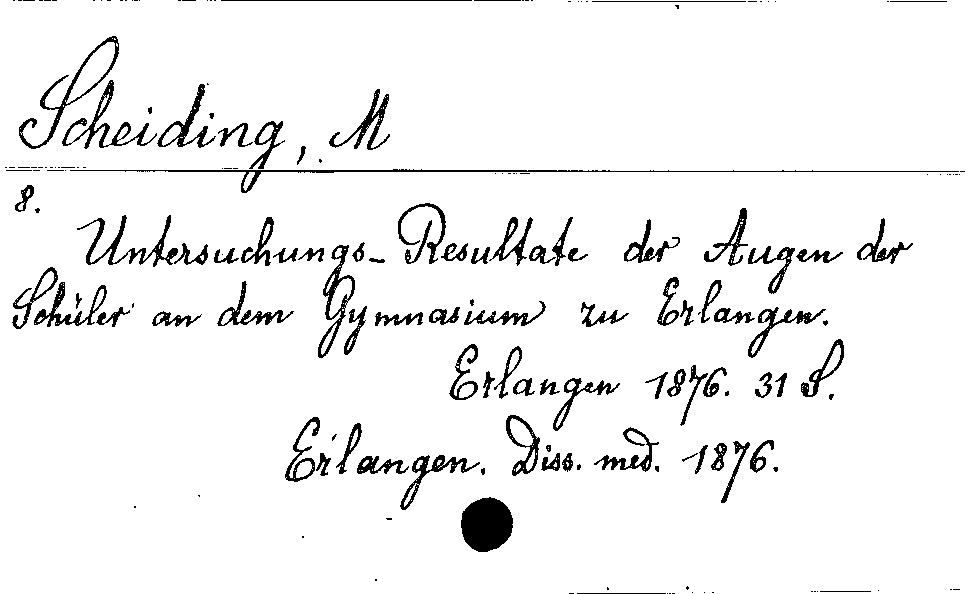 Scheiding, M
8.
Untersuchungs-Resultate der Augen der
Schüler an dem Gymnasium zu Erlangen.
Erlangen 1876. 31 S.
Erlangen. Diss. med. 1876.